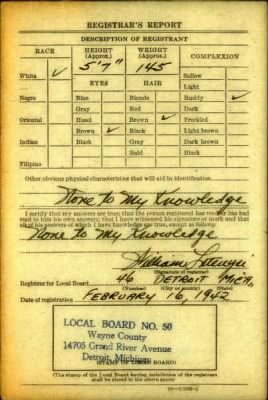 REGISTRAR'S REPORT
DESCRIPTION OF REGISTRANT
RACE HEIGHT (Approx.) WEIGHT (Approx.) COMPLEXION
White ✓ 5'7" 145 Sallow
EYES HAIR Light
Negro Blue Blonde Ruddy ✓
Gray Red Dark
Oriental Hazel Brown ✓ Freckled
Brown ✓ Black Light brown
Indian Black Gray Dark brown
Bald Black
Filipino
Other obvious physical characteristics that will aid in identification
None to My Knowledge
I certify that my answers are true; that the person registered has read or has had
read to him his own answers; that I have witnessed his signature or mark and that
all of his answers of which I have knowledge are true, except as follows:
None to My Knowledge
William
(Signature of registrar)
Registrar for Local Board 46 DETROIT MICH.
(Number) (City or county) (State)
Date of registration FEBRUARY 16, 1942
LOCAL BOARD NO. 50
Wayne County
14705 Grand River Avenue
Detroit, Michigan
(STAMP OF LOCAL BOARD)
(The stamp of the Local Board having jurisdiction of the registrant
shall be placed in the above space.)